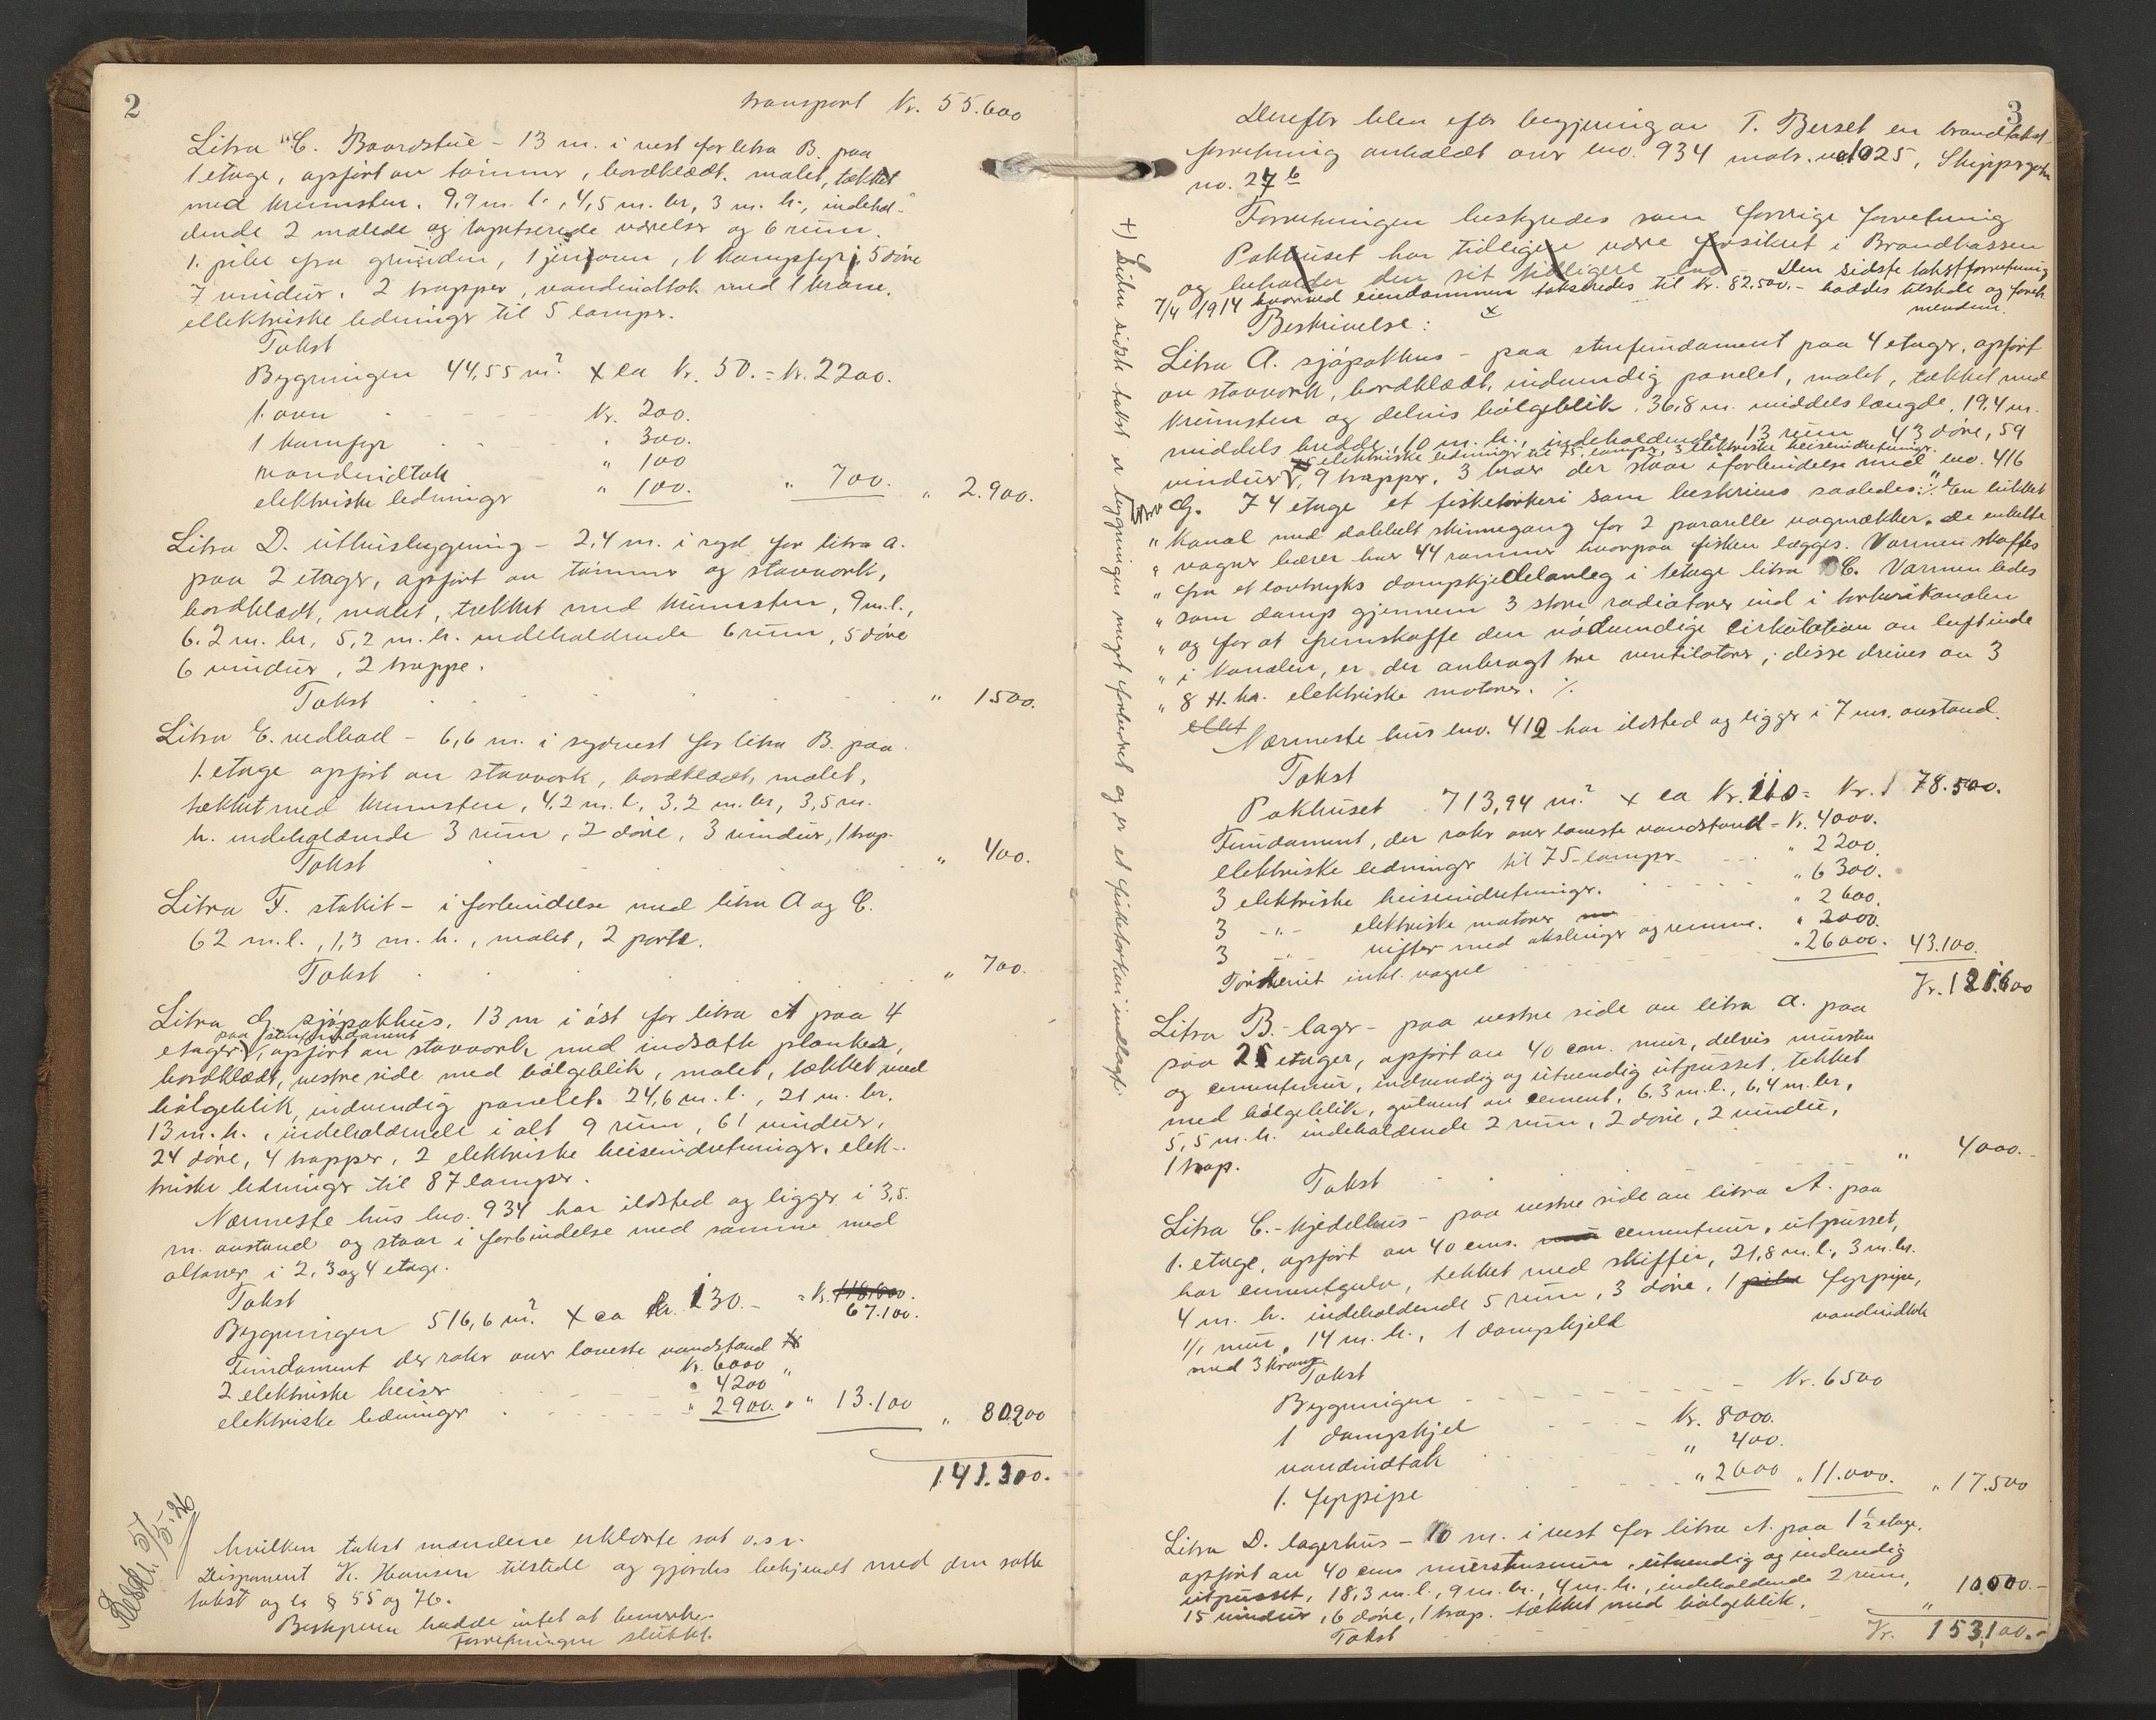 2
transport Kr. 55.600
Litra "C. Baardstue - 13 m. i vest for litra B. paa
1 etage, opført av tømmer, bordklædt. malet, tækket
med krumsten. 9,9 m. l., 4,5 m. br, 3 m. h., indehol-
dende 2 malede og tapetserede værelser og 6 rum.
1. pibe fra grunden, 1 jernovn, 1 kamfyr, 5 døre
7 vinduer. 2 trapper, vandindtak med 1 krane.
ellektriske ledninger til 5 lamper.
Takst
Bygningen 44,55 m² x ca Kr. 50. = Kr. 2200.
1. ovn Kr. 200.
1 kamfyr " 300.
vandindtak " 100
elektriske ledninger " 100. " 700. " 2.900.
Litra D. uthusbygning - 2,4 m. i syd for litra a.
paa 2 etager, opført av tømmer og stavverk,
bordklædt, malet, tækket med krumsten, 9 m. l.,
6.2 m. br, 5,2 m. h. indeholdende 6 rum, 5 døre
6 vinduer, 2 trappe.
Takst " 1500.
Litra E. vedbod - 6,6 m. i sydvest for litra B. paa
1. etage opført av stavverk, bordklædt, malet,
tækket med krumsten, 4,2 m. l, 3,2 m. br, 3,5 m.
h. indeholdende 3 rum, 2 døre, 3 vinduer, 1 trap.
Takst " 400.
Litra F. stakit - i forbindelse med litra A og C.
62 m. l., 1,3 m. h., malet, 2 porte.
Takst " 700.
Litra G sjøpakhus. 13 m i øst for litra A paa 4
paa stenfundament
etager, opført av stavverk med indsatte planker,
bordklædt, vestre side med bølgeblik, malet, tækket med
bølgeblik, indvendig panelet. 24,6 m. l., 21 m. br.
13 m. h., indeholdende i alt 9 rum, 61 vinduer,
24 døre, 4 trapper, 2 elektriske heiseindretninger, elek-
triske ledninger til 87 lamper.
Nærmeste hus bno. 934 har ildsted og ligger i 3,5
m. avstand og staar i forbindelse med samme med
altaner i 2, 3 og 4 etage.
Takst
Bygningen 516,6 m² x ca Kr. 130. - = Kr. 67.100.
Fundament der raker over laveste vandstand
Kr. 6000 "
2 elektriske heiser " 4200
elektriske ledninger " 2900. " " 13.100 " 80.200
141.300.
hvilken takst mændene erklærte sat o.s.v.
Disponent K. Hansen tilstede og gjordes bekjendt med den satte
takst og la § 55 og 76.
Bestyreren hadde intet at bemerke.
Forretningen sluttet.
Beskr. 5/5-26
3
Derefter blev efter begjæring av T. Berset en brandtakst-
forretning avholdt over bno. 934 matr. no 1025, Skippergaten
no. 27 b
Forretningen bestyredes som forrige forretning
Pakhuset har tidligere være forsikret i Brandkassen
og beholder den sit tidligere bno. Den sidste takstforretning
7/4 1914 hvorved eiendommen takseredes til Kr. 82.500.- haddes tilstede og foreh.
mændene.
x
Beskrivelse:
Litra A. sjøpakhus - paa stenfundament paa 4 etager, opført
av stavverk, bordklædt, indvendig panelet, malet, tækket med
krumsten og delvis bølgeblik. 36,8 m. middels længde, 19,4 m.
middels bredde, 10 m. h., indeholdende 13 rum 43 døre, 59
elektriske ledninger til 75 lamper, 3 elektriske heiseindretninger.
vinduer, 9 trapper, 3 broer der staar i forbindelse med bno. 416
litra G. I 4 etage et fisketørkeri som beskrives saaledes: ./. "En lukket
" kanal med dobbelt skinnegang for 2 pararelle vognrækker. De enkelte
" vogner bærer hver 44 rammer hvorpaa fisken lægges. Varmen skaffes
" fra et lavtryks dampkjedelanleg i 1 etage litra C. Varmen ledes
" som damp gjennem 3 store radiatorer ind i tørkerikanalen
" og for at fremskaffe den nødvendige cirkulation av luft inde
" i kanalen, er der anbragt tre ventilatorer, disse drives av 3
" 8 H. kr. elektriske motorer. ./.
Nærmeste hus bno. 412 har ildsted og ligger i 7 m. avstand.
Takst
Pakhuset 713,94 m² x ca Kr. 110 = Kr. 78.500.
Fundament, der raker over laveste vandstand = Kr. 4000.
elektriske ledninger til 75 lamper " 2200.
3 elektriske heiseindretninger. " 6300.
3 - " - elektriske motorer " 2600.
3 - " - vifter med akslinger og remme. " 2000.
Tørkeriet inkl. vogne " 26000. 43.100.
Kr. 121.600
Litra B. - lager - paa vestre side av litra a. paa
paa 2 etager, opført av 40 cm. mur, delvis mursten
og cementmur, indvendig og utvendig utpusset, tækket
med bølgeblik, gulvet av cement, 6.3 m. l., 6,4 m. br,
5,5 m. h. indeholdende 2 rum, 2 døre, 2 vindu,
1 trap.
Takst " 4000.-
Litra C. - kjedelhus - paa vestre side av litra A. paa
1. etage, opført av 40 cms. cementmur, utpusset,
har cementgulv, tækket med skiffer, 21,8 m. l., 3 m. br.
4 m. h. indeholdende 5 rum, 3 døre, 1 fyrpipe,
1/1 mur, 14 m. h., 1 dampkjele vandindtak
med 3 kraner
Takst
Bygningen Kr. 6500
1 dampkjel Kr. 8000.
vandindtak " 400.
1. fyrpipe " 2600 " 11.000. " 17.500
Litra D. lagerhus - 10 m. i vest for litra A. paa 1 1/2 etage,
opført av 40 cms murstensmur, utvendig og indvendig
utpusset, 18,3 m. l., 9 m. br., 4 m. h., indeholdende 2 rum,
15 vinduer, 6 døre, 1 trap. tækket med bølgeblik.
Takst " 10.000.-
Kr. 153,100.-
+) Siden sidste takst er bygningen meget forbedret og er et fisketørkeri indlagt.